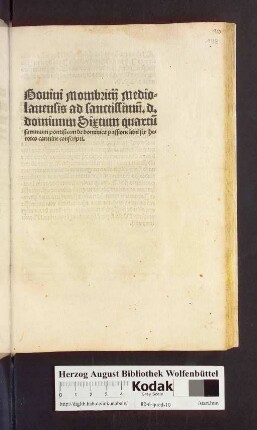 Bonini Mombritij Medio-
lanensis ad sanctissimū. d.
dominum Sixtum quartū
summum pontificem de dominica passione libri sex he
roico carmine conscripti.
Herzog August Bibliothek Wolfenbüttel
Kodak